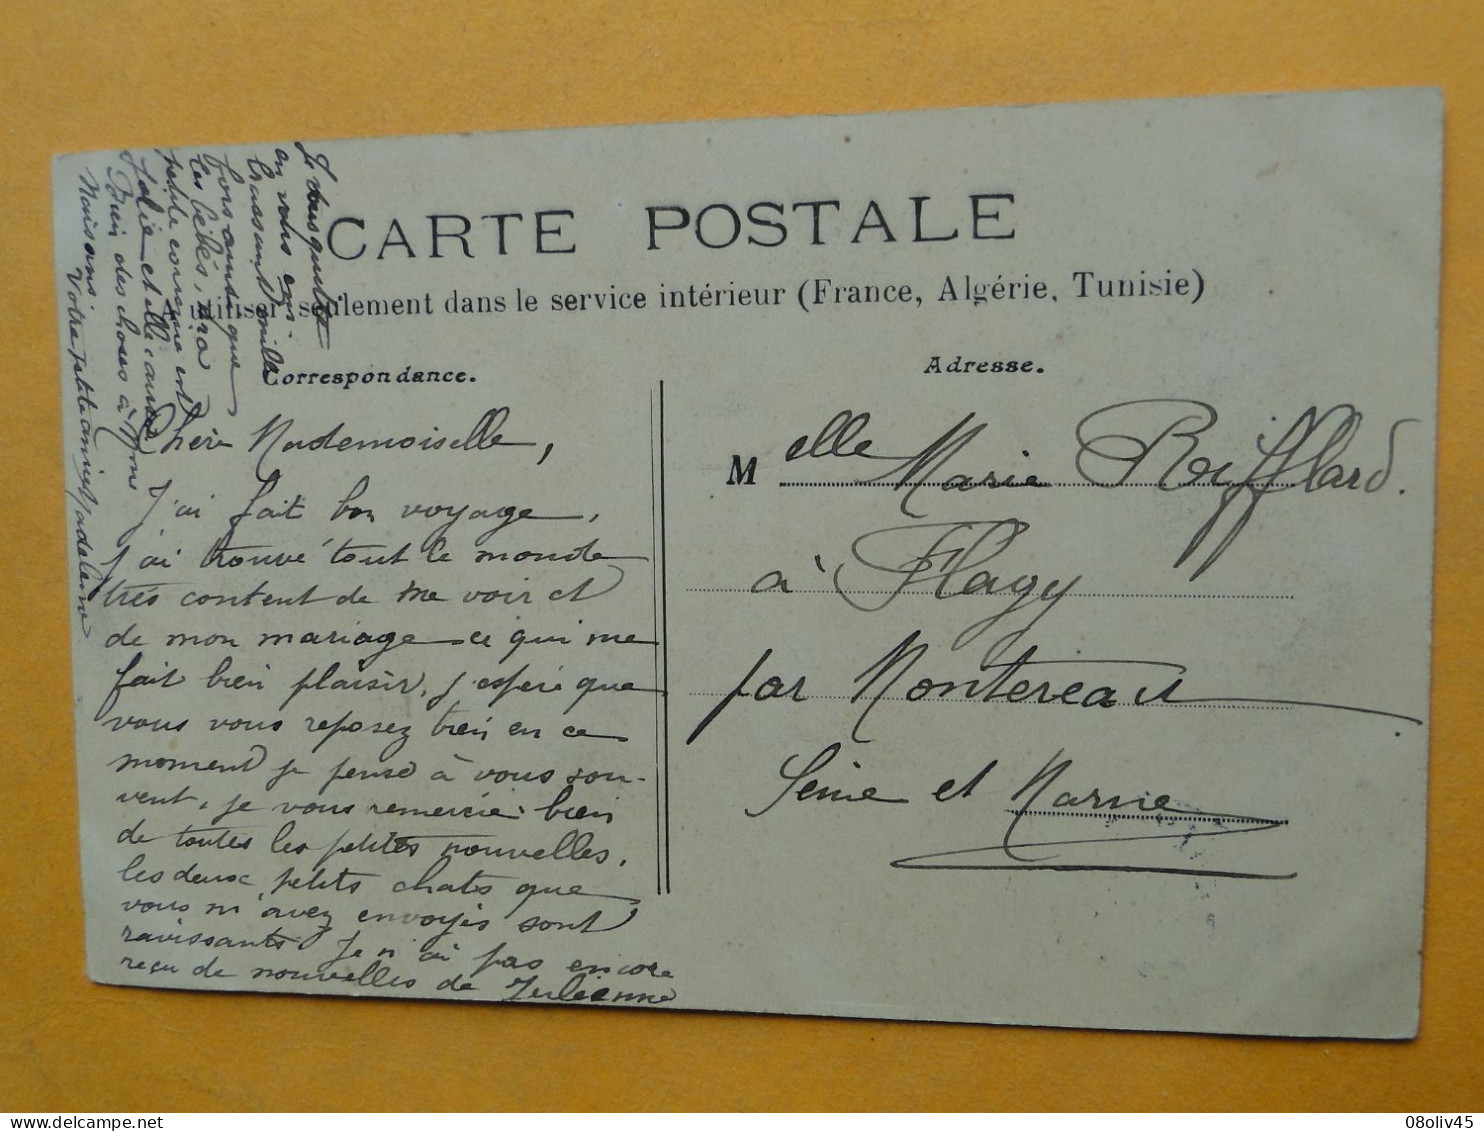 CARTE POSTALE
A utiliser seulement dans le service intérieur (France, Algérie, Tunisie)
Correspondance.
Chère Mademoiselle,
J'ai fait bon voyage,
j'ai trouvé tout le monde
très content de me voir et
de mon mariage ce qui me
fait bien plaisir, j'espère que
vous vous reposez bien en ce
moment je pense à vous sou-
vent, je vous remercie bien
de toutes les petites nouvelles,
les deux petits chats que
vous m'avez envoyés sont
ravissants. Je n'ai pas encore
reçu de nouvelles de Julienne
Je vous quitte
en vous em-
brassant mille
fois ainsi que
les bébés,
petite comme est
jolie et elle cause
Bien des choses à Mme
Votre petite amie Madeleine
Adresse.
Melle Marie Rifflard.
à Flagy
par Montereau
Seine et Marne
08oliv45